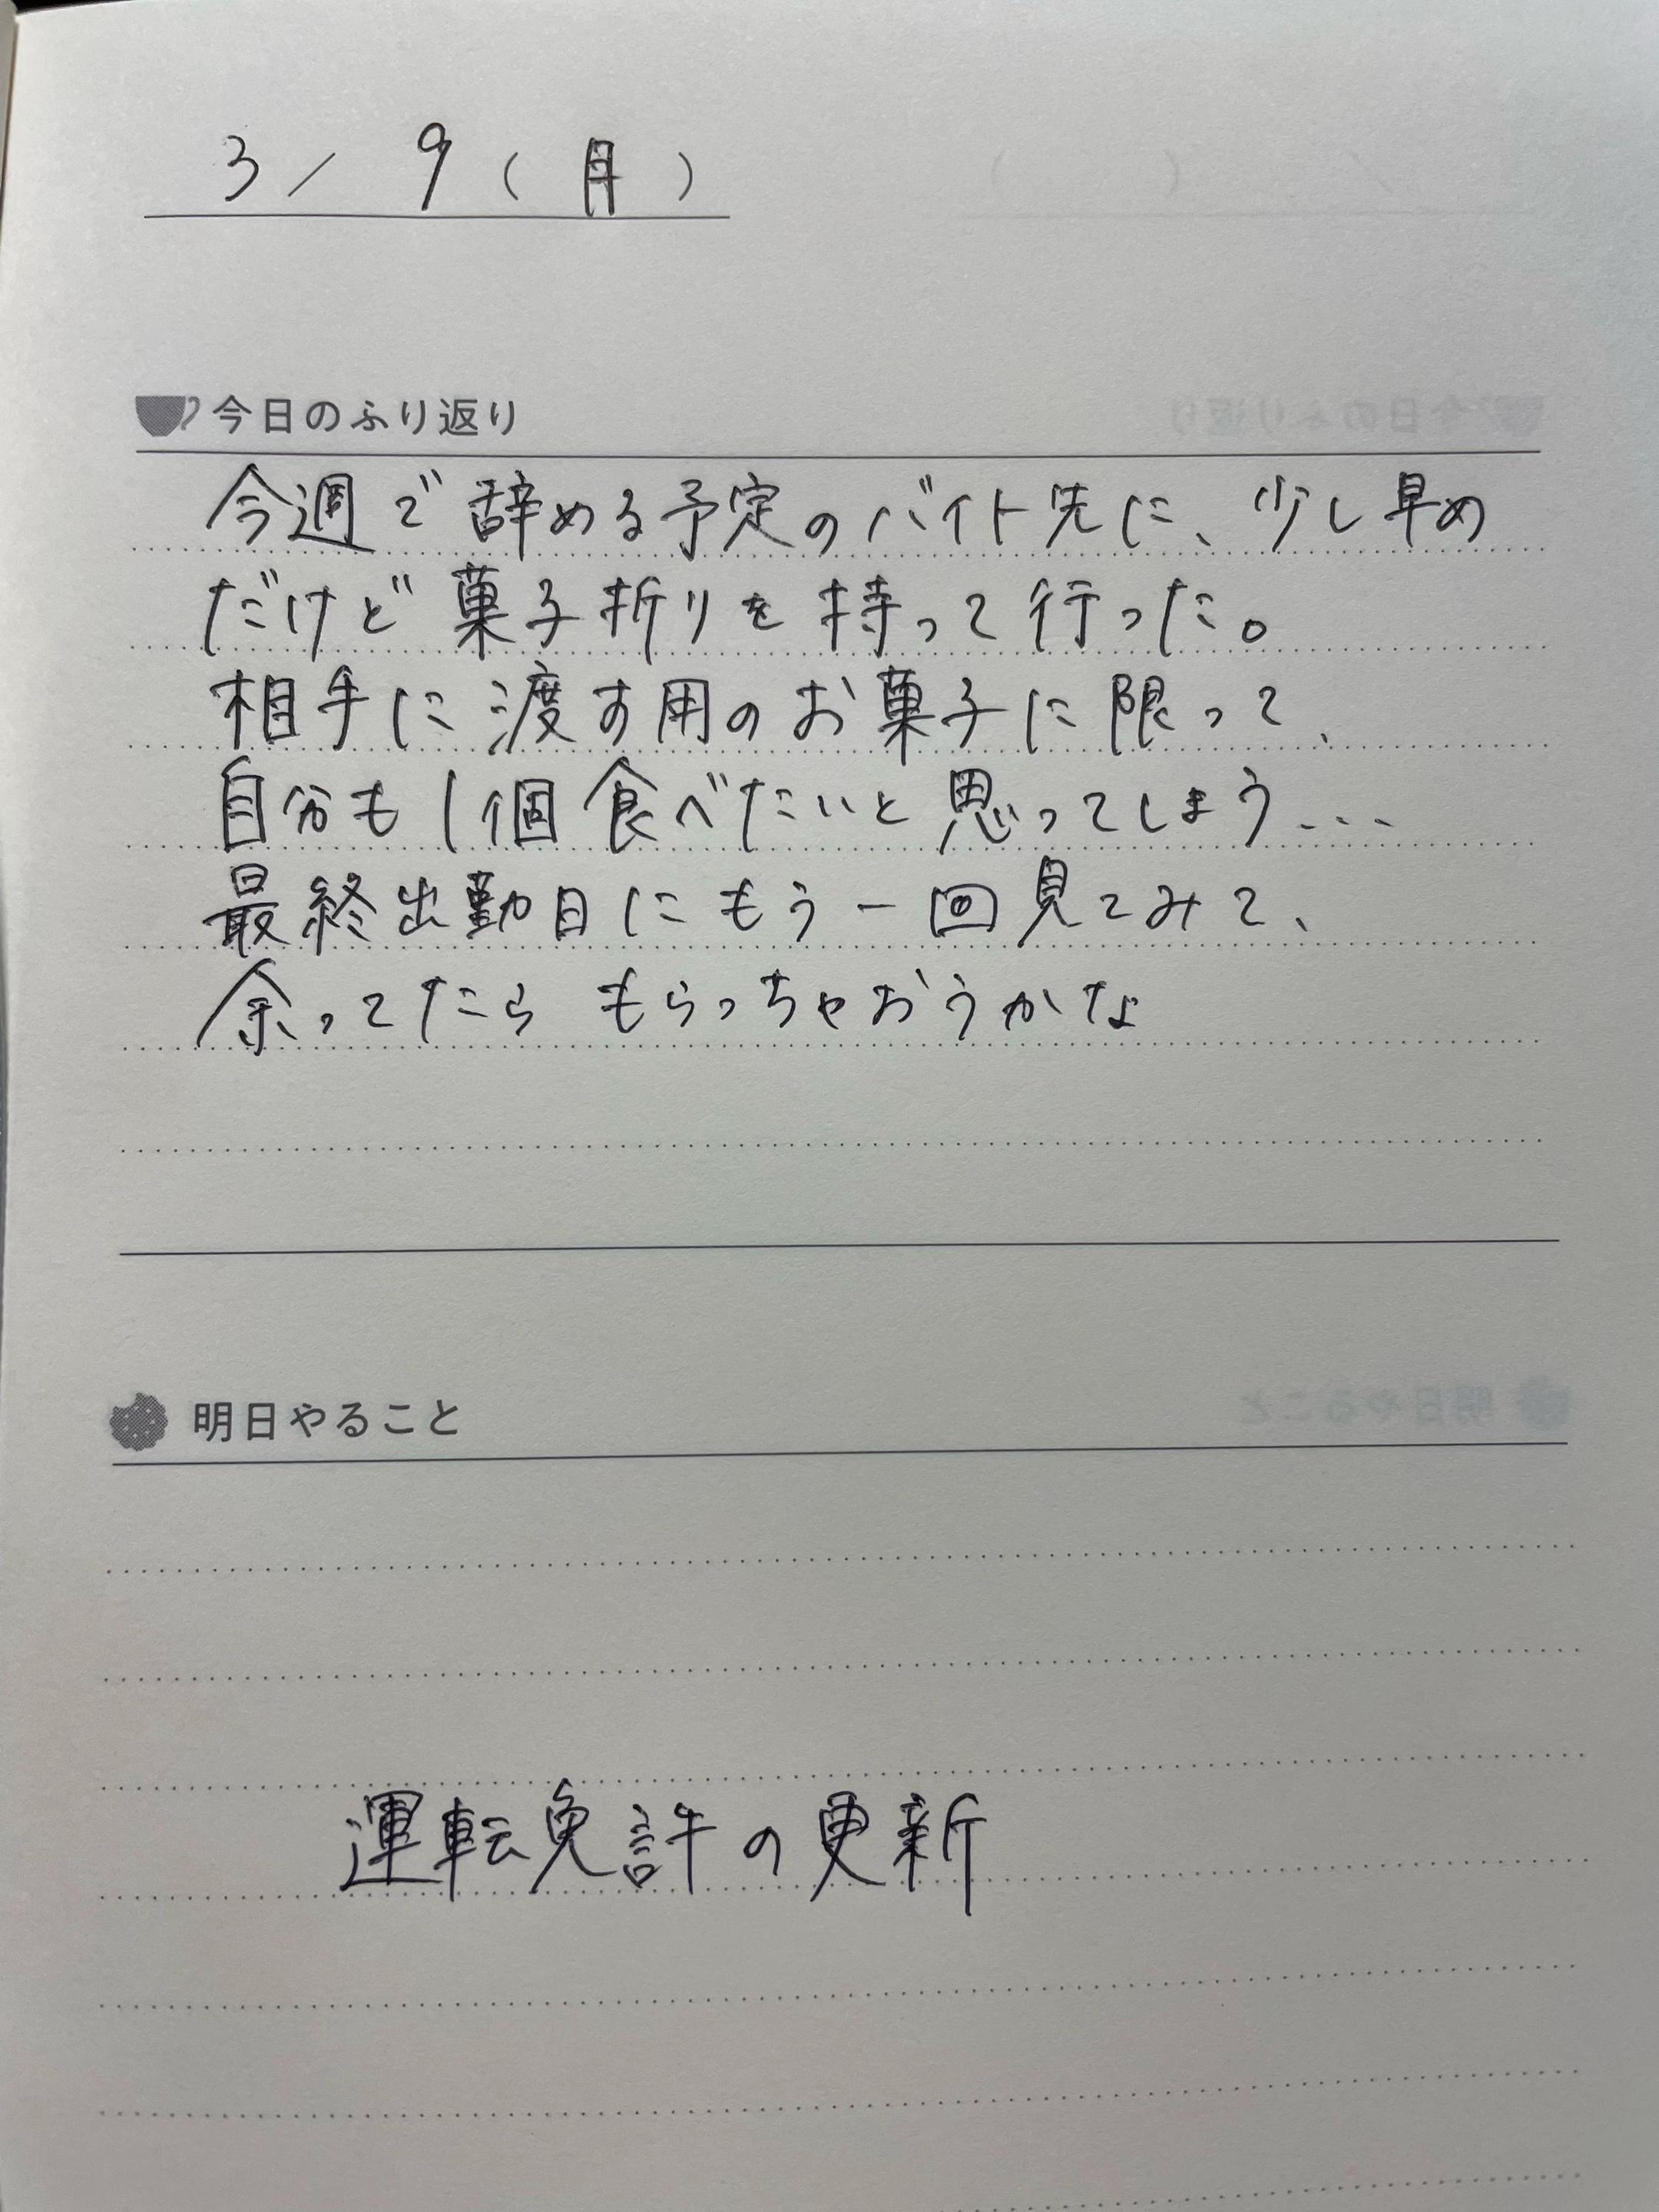 3/9(月)
今日のふり返り
今週で辞める予定のバイト先に、少し早め
だけど菓子折りを持って行った。
相手に渡す用のお菓子に限って、
自分も1個食べたいと思ってしまう...
最終出勤日にもう一回見てみて、
余ってたら もらっちゃおうかな
明日やること
運転免許の更新